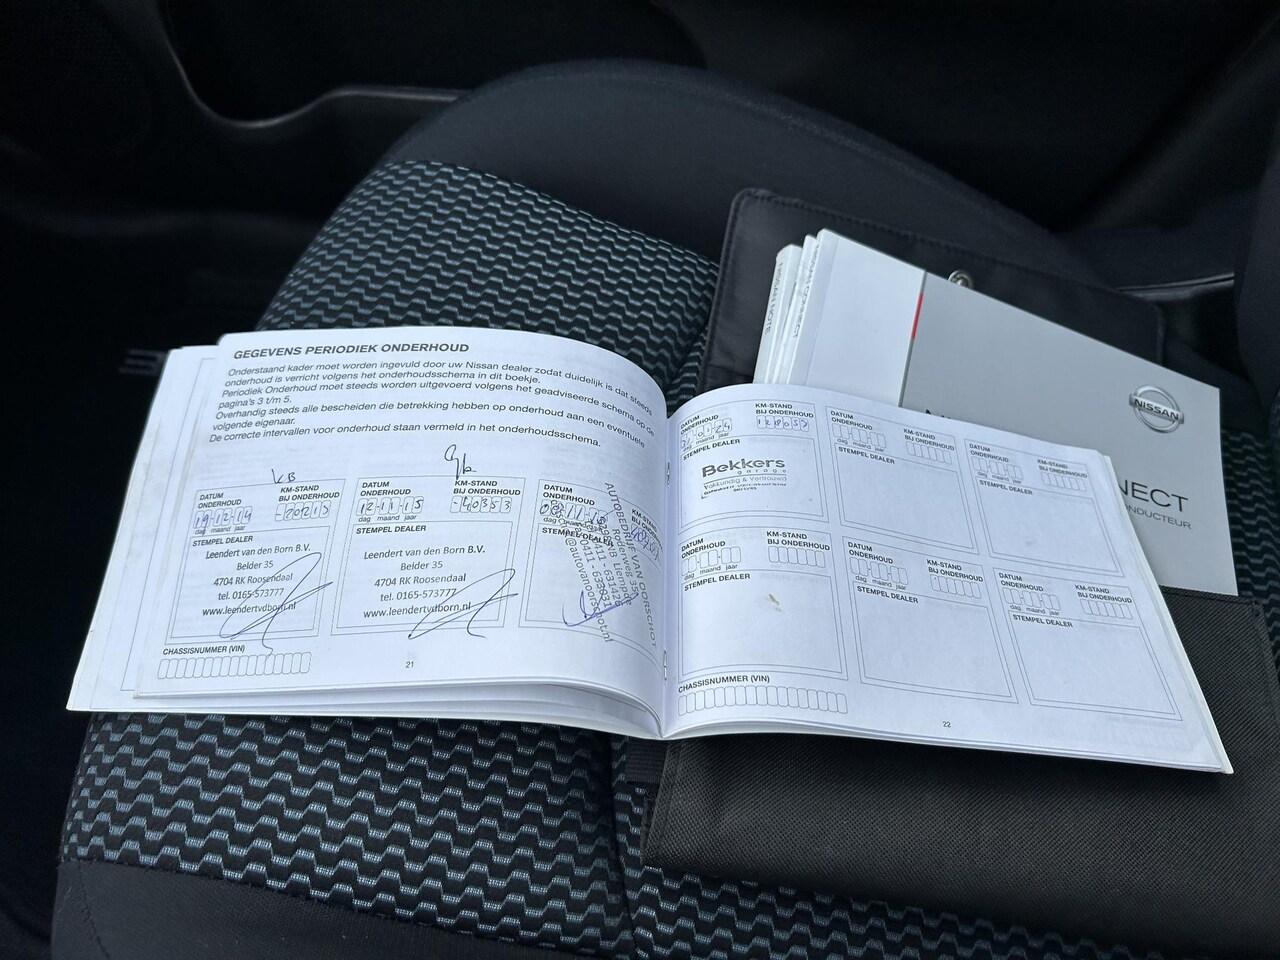 GEGEVENS PERIODIEK ONDERHOUD
Onderstaand kader moet worden ingevuld door uw Nissan dealer zodat duidelijk is dat steeds
onderhoud is verricht volgens het onderhoudsschema in dit boekje.
Periodiek Onderhoud moet steeds worden uitgevoerd volgens het geadviseerde schema op de
pagina's 3 t/m 5.
Overhandig steeds alle bescheiden die betrekking hebben op onderhoud aan een eventuele
volgende eigenaar.
De correcte intervallen voor onderhoud staan vermeld in het onderhoudsschema.
DATUM ONDERHOUD
KM-STAND BIJ ONDERHOUD
19-12-14
-20213
dag maand jaar
STEMPEL DEALER
Leendert van den Born B.V.
Belder 35
4704 RK Roosendaal
tel. 0165-573777
www.leendertvdborn.nl
DATUM ONDERHOUD
KM-STAND BIJ ONDERHOUD
12-11-15
-40353
dag maand jaar
STEMPEL DEALER
Leendert van den Born B.V.
Belder 35
4704 RK Roosendaal
tel. 0165-573777
www.leendertvdborn.nl
DATUM ONDERHOUD
KM-STAND
dag maand jaar
STEMPEL DEALER
AUTOBEDRIJF VAN OORSCHOT
Liempde
0411 - 631426
0411 - 633931
CHASSISNUMMER (VIN)
21
DATUM ONDERHOUD
KM-STAND BIJ ONDERHOUD
24
128057
dag maand jaar
STEMPEL DEALER
Bekkers
garage
Vakkundig & Vertrouwd
DATUM ONDERHOUD
KM-STAND BIJ ONDERHOUD
dag maand jaar
STEMPEL DEALER
DATUM ONDERHOUD
KM-STAND BIJ ONDERHOUD
dag maand jaar
STEMPEL DEALER
DATUM ONDERHOUD
KM-STAND BIJ ONDERHOUD
dag maand jaar
STEMPEL DEALER
DATUM ONDERHOUD
KM-STAND BIJ ONDERHOUD
dag maand jaar
STEMPEL DEALER
DATUM ONDERHOUD
KM-STAND BIJ ONDERHOUD
dag maand jaar
STEMPEL DEALER
CHASSISNUMMER (VIN)
22
NISSAN NOTE
NISSAN
NECT
CONDUCTEUR